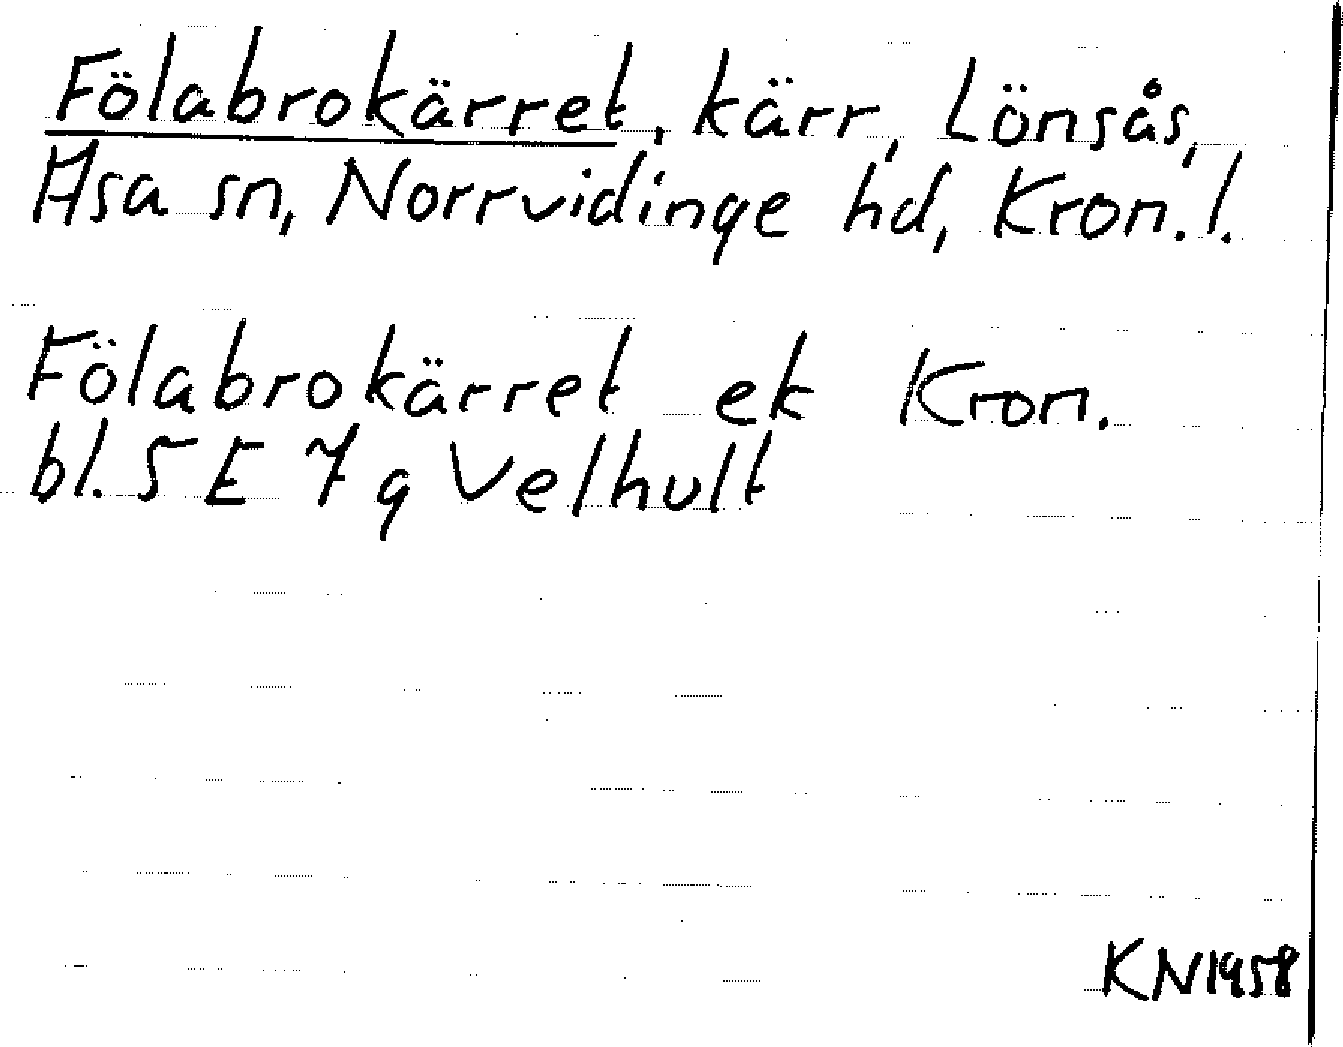 Fölabrokärret, kärr, Lönsås,
Asa sn, Norrvidinge hd, Kron. l.
Fölabrokärret ek Kron.
bl. 5 E 7 g Velhult
KN1958